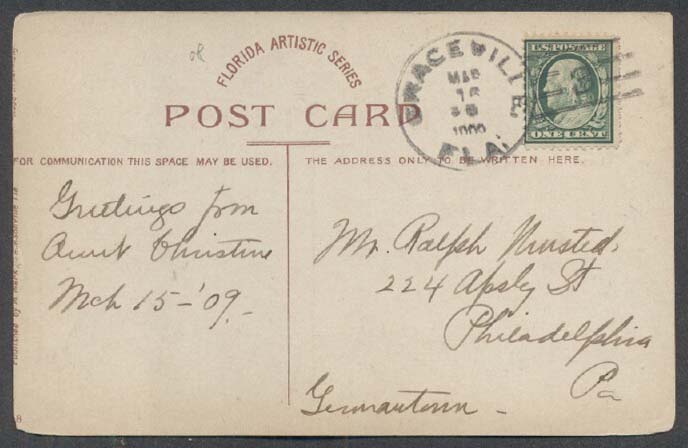 FLORIDA ARTISTIC SERIES
POST CARD
GRACEVILLE
MAR
1909
FLA.
U.S. POSTAGE
ONE CENT
FOR COMMUNICATION THIS SPACE MAY BE USED.
THE ADDRESS ONLY TO BE WRITTEN HERE.
Greetings from
Aunt Christine
Mch 15-'09.
Mr. Ralph
224 Apsley St
Philadelphia
Pa
Germantown -
Published by
8